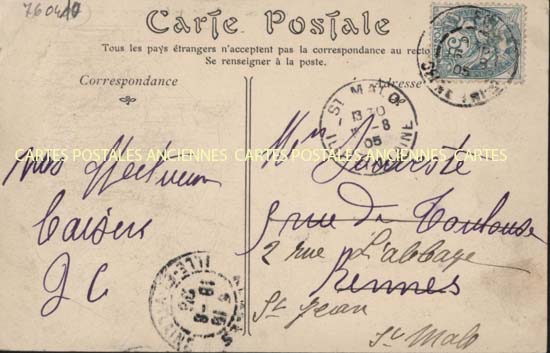 760410
Carte Postale
Tous les pays étrangers n'acceptent pas la correspondance au recto
Se renseigner à la poste.
Correspondance
Adresse
ST MALO
13 30
-8
05
ILLE
CARTES POSTALES ANCIENNES CARTES POSTALES ANCIENNES CARTES
Nos affectueux
baisers
J C
5 rue de Toulouse
2 rue L'abbaye
Rennes
St Jean
St Malo